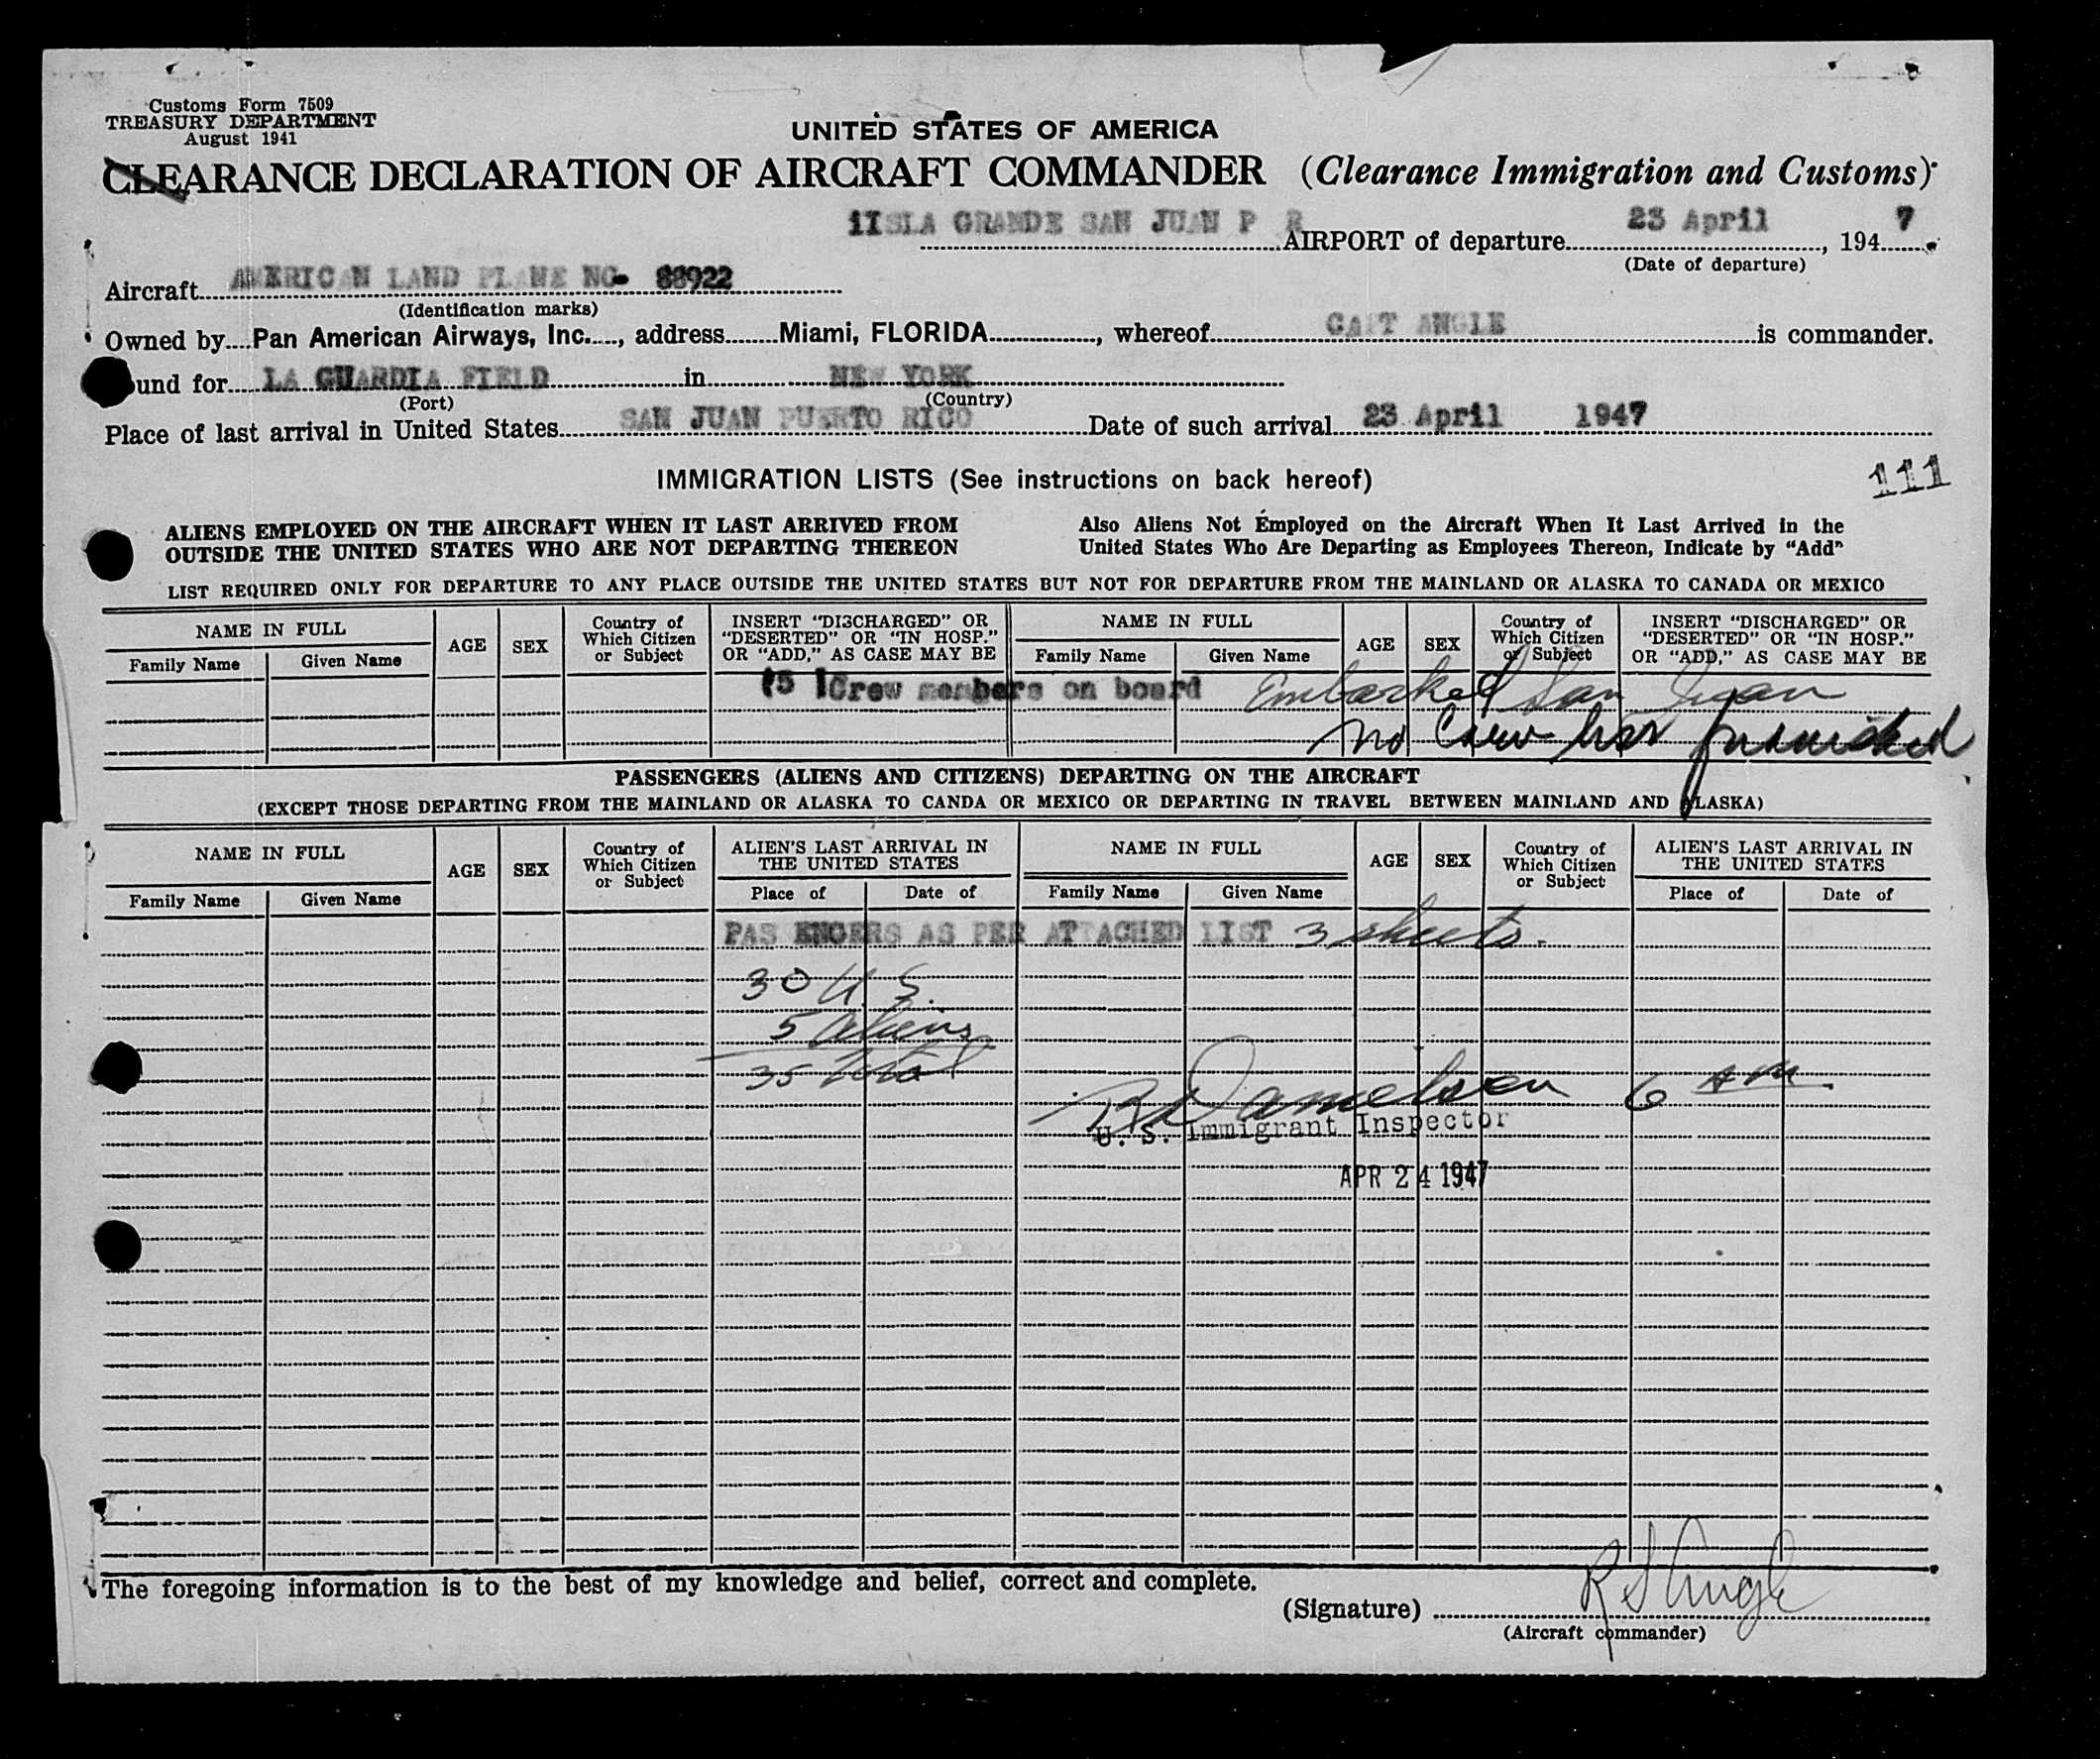 Customs Form 7509
TREASURY DEPARTMENT
August 1941
UNITED STATES OF AMERICA
CLEARANCE DECLARATION OF AIRCRAFT COMMANDER (Clearance Immigration and Customs)
1ISLA GRANDE SAN JUAN P R AIRPORT of departure 23 April, 1947
(Date of departure)
Aircraft AMERICAN LAND PLANE NO. 88922
(Identification marks)
Owned by Pan American Airways, Inc., address Miami, FLORIDA, whereof CAPT ANGLE is commander.
und for LA GUARDIA FIELD in NEW YORK
(Port) (Country)
Place of last arrival in United States SAN JUAN PUERTO RICO Date of such arrival 23 April 1947
IMMIGRATION LISTS (See instructions on back hereof)
111
ALIENS EMPLOYED ON THE AIRCRAFT WHEN IT LAST ARRIVED FROM
OUTSIDE THE UNITED STATES WHO ARE NOT DEPARTING THEREON
Also Aliens Not Employed on the Aircraft When It Last Arrived in the
United States Who Are Departing as Employees Thereon, Indicate by "Add"
LIST REQUIRED ONLY FOR DEPARTURE TO ANY PLACE OUTSIDE THE UNITED STATES BUT NOT FOR DEPARTURE FROM THE MAINLAND OR ALASKA TO CANADA OR MEXICO
NAME IN FULL
Family Name Given Name
AGE
SEX
Country of
Which Citizen
or Subject
INSERT "DISCHARGED" OR
"DESERTED" OR "IN HOSP."
OR "ADD," AS CASE MAY BE
NAME IN FULL
Family Name Given Name
AGE
SEX
Country of
Which Citizen
or Subject
INSERT "DISCHARGED" OR
"DESERTED" OR "IN HOSP."
OR "ADD," AS CASE MAY BE
(5 )Crew members on board Embarked San Juan
No Crew list furnished
PASSENGERS (ALIENS AND CITIZENS) DEPARTING ON THE AIRCRAFT
(EXCEPT THOSE DEPARTING FROM THE MAINLAND OR ALASKA TO CANDA OR MEXICO OR DEPARTING IN TRAVEL BETWEEN MAINLAND AND ALASKA)
NAME IN FULL
Family Name Given Name
AGE
SEX
Country of
Which Citizen
or Subject
ALIEN'S LAST ARRIVAL IN
THE UNITED STATES
Place of Date of
NAME IN FULL
Family Name Given Name
AGE
SEX
Country of
Which Citizen
or Subject
ALIEN'S LAST ARRIVAL IN
THE UNITED STATES
Place of Date of
PAS ENGERS AS PER ATTACHED LIST 3 sheets.
30 U.S.
5 aliens
35 total
R Danielsen 6 AM.
U. S. Immigrant Inspector
APR 24 1947
The foregoing information is to the best of my knowledge and belief, correct and complete.
(Signature) R S Angle
(Aircraft commander)